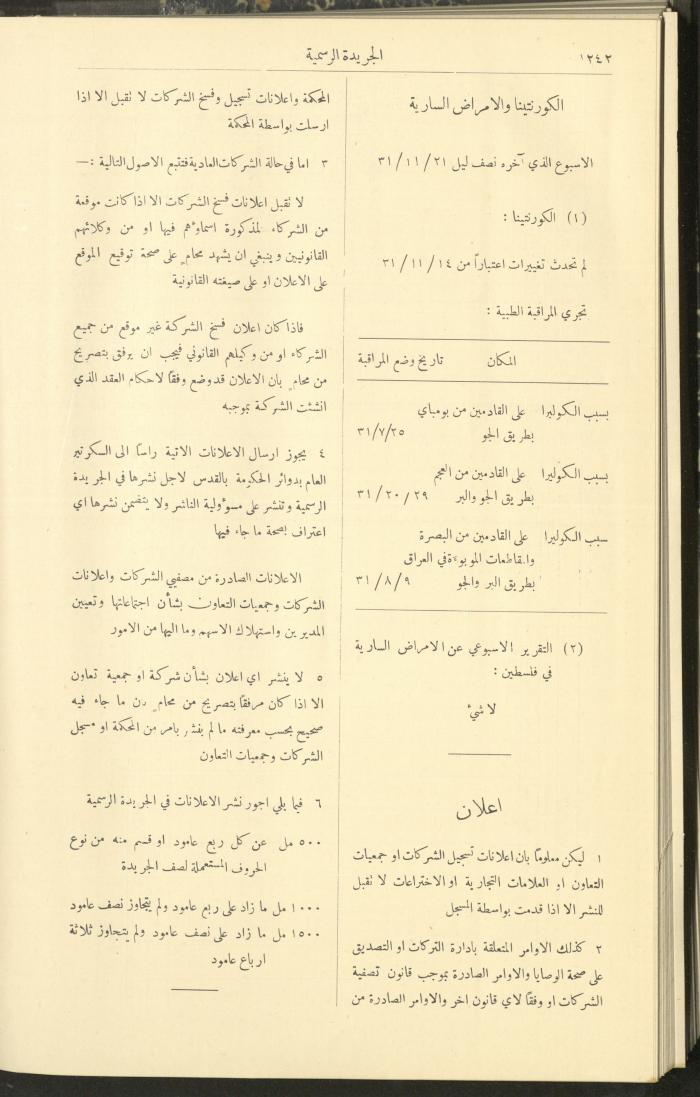 ١٢٤٢
الجريدة الرسمية
الكورنتينا والامراض السارية
الاسبوع الذي آخره نصف ليل ٢١/ ١١/ ٣١
(١) الكورنتينا :
لم تحدث تغييرات اعتباراً من ١٤ / ١١ / ٣١
تجري المراقبة الطبية :
المكان تاريخ وضع المراقبة
بسبب الكوليرا على القادمين من بومباي
بطريق الجو ٣١/٧/٢٥
بسبب الكوليرا على القادمين من العجم
بطريق الجو والبر ٢٩ /٢٠ / ٣١
سبب الكوليرا على القادمين من البصرة
والمقاطعات الموبوءة في العراق
بطريق البر والجو ٩ / ٨ / ٣١
(٢) التقرير الاسبوعي عن الامراض السارية
في فلسطين :
لا شيء
اعلان
١ ليكن معلوماً بان اعلانات تسجيل الشركات او جمعيات
التعاون او العلامات التجارية او الاختراعات لا تقبل
للنشر الا اذا قدمت بواسطة المسجل
٢ كذلك الاوامر المتعلقة بادارة التركات او التصديق
على صحة الوصايا والاوامر الصادرة بموجب قانون تصفية
الشركات او وفقاً لاي قانون اخر والاوامر الصادرة من
المحكمة واعلانات تسجيل وفسخ الشركات لا تقبل الا اذا
ارسلت بواسطة المحكمة
٣ اما في حالة الشركات العادية فتتبع الاصول التالية :—
لا تقبل اعلانات فسخ الشركات الا اذا كانت موقعة
من الشركاء المذكورة اسماؤهم فيها او من وكلائهم
القانونيين وينبغي ان يشهد محامٍ على صحة توقيع الموقع
على الاعلان او على صيغته القانونية
فاذا كان اعلان فسخ الشركة غير موقع من جميع
الشركاء او من وكيلهم القانوني فيجب ان يرفق بتصريح
من محامٍ بان الاعلان قد وضع وفقاً لاحكام العقد الذي
انشئت الشركة بموجبه
٤ يجوز ارسال الاعلانات الاتية راساً الى السكرتير
العام بدوائر الحكومة بالقدس لاجل نشرها في الجريدة
الرسمية وتنشر على مسؤولية الناشر ولا يتضمن نشرها اي
اعتراف بصحة ما جاء فيها
الاعلانات الصادرة من مصفيي الشركات واعلانات
الشركات وجمعيات التعاون بشأن اجتماعاتها وتعيين
المديرين واستهلاك الاسهم وما اليها من الامور
٥ لا ينشر اي اعلان بشأن شركة او جمعية تعاون
الا اذا كان مرفقاً بتصريح من محامٍ بان ما جاء فيه
صحيح بحسب معرفته ما لم ينشر بامر من المحكمة او مسجل
الشركات وجمعيات التعاون
٦ فيما يلي اجور نشر الاعلانات في الجريدة الرسمية
٥٠٠ مل عن كل ربع عامود او قسم منه من نوع
الحروف المستعملة لصف الجريدة
١٠٠٠ مل ما زاد على ربع عامود ولم يتجاوز نصف عامود
١٥٠٠ مل ما زاد على نصف عامود ولم يتجاوز ثلاثة
ارباع عامود